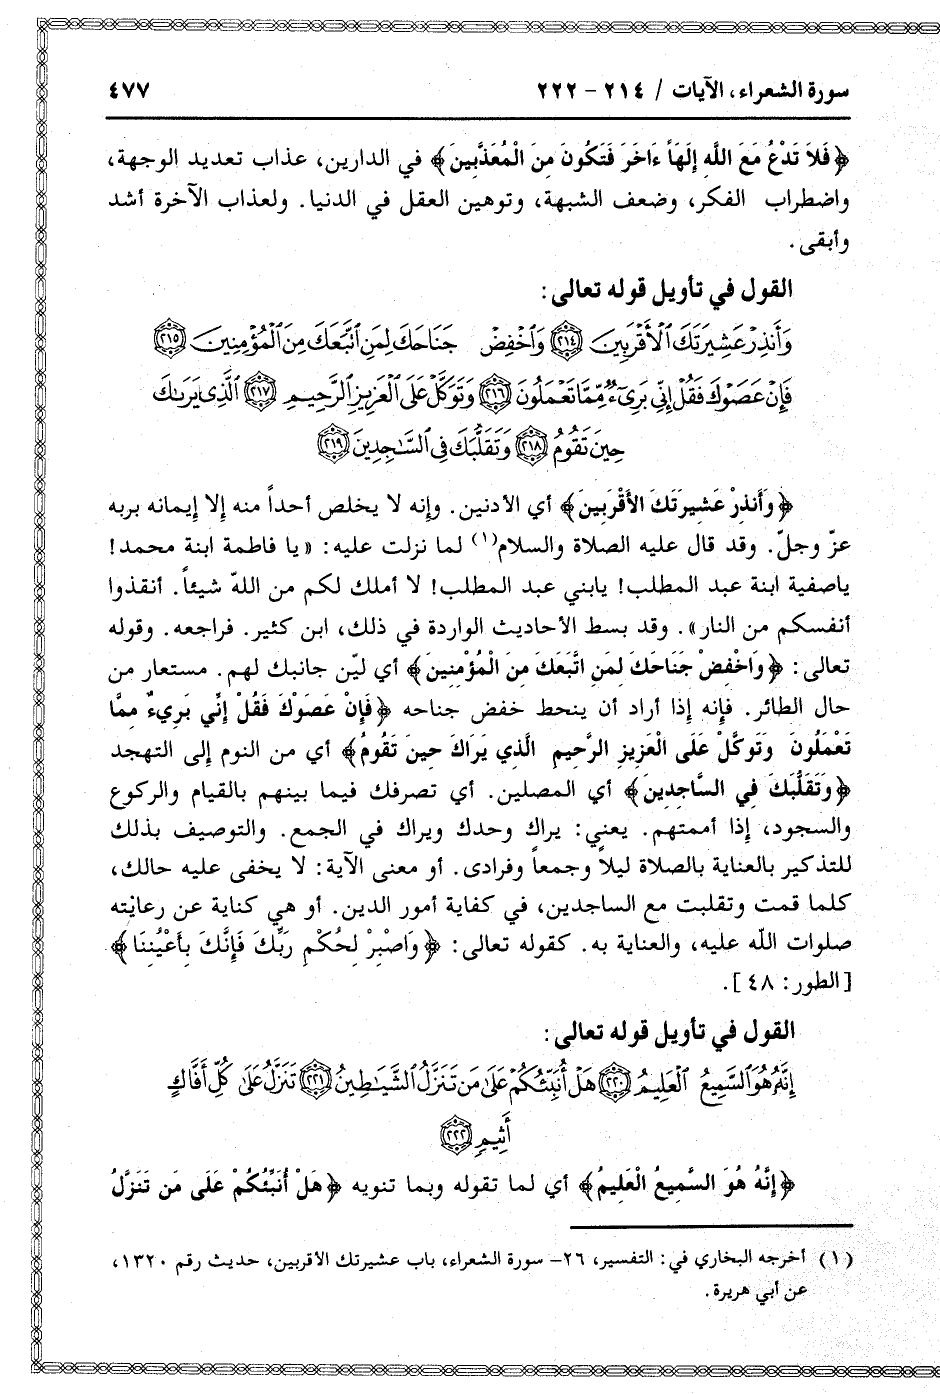 سورة الشعراء، الآيات / ٢١٤ - ٢٢٢ ٤٧٧
﴿فَلاَ تَدْعُ مَعَ اللَّهِ إِلَهاً ءَاخَرَ فَتَكُونَ مِنَ الْمُعَذَّبِينَ﴾ في الدارين، عذاب تعديد الوجهة،
واضطراب الفكر، وضعف الشبهة، وتوهين العقل في الدنيا. ولعذاب الآخرة أشد
وأبقى.
القول في تأويل قوله تعالى:
وَأَنذِرْ عَشِيرَتَكَ ٱلْأَقْرَبِينَ ٢١٤ وَٱخْفِضْ جَنَاحَكَ لِمَنِ ٱتَّبَعَكَ مِنَ ٱلْمُؤْمِنِينَ ٢١٥
فَإِنْ عَصَوْكَ فَقُلْ إِنِّي بَرِيٓءٌ مِّمَّا تَعْمَلُونَ ٢١٦ وَتَوَكَّلْ عَلَى ٱلْعَزِيزِ ٱلرَّحِيمِ ٢١٧ ٱلَّذِى يَرَىٰكَ
حِينَ تَقُومُ ٢١٨ وَتَقَلُّبَكَ فِى ٱلسَّٰجِدِينَ ٢١٩
﴿وَأَنذِرْ عَشِيرَتَكَ الأَقْرَبِينَ﴾ أي الأدنين. وإنه لا يخلص أحداً منه إلا إيمانه بربه
عزّ وجلّ. وقد قال عليه الصلاة والسلام(١) لما نزلت عليه: «يا فاطمة ابنة محمد!
ياصفية ابنة عبد المطلب! يابني عبد المطلب! لا أملك لكم من اللّه شيئاً. أنقذوا
أنفسكم من النار». وقد بسط الأحاديث الواردة في ذلك، ابن كثير. فراجعه. وقوله
تعالى: ﴿وَاخْفِضْ جَنَاحَكَ لِمَنِ اتَّبَعَكَ مِنَ الْمُؤْمِنِينَ﴾ أي ليّن جانبك لهم. مستعار من
حال الطائر. فإنه إذا أراد أن ينحط خفض جناحه ﴿فَإِنْ عَصَوْكَ فَقُلْ إِنِّي بَرِيءٌ مِمَّا
تَعْمَلُونَ وَتَوكَّلْ عَلَى الْعَزِيزِ الرَّحِيمِ الَّذِي يَرَاكَ حِينَ تَقُومُ﴾ أي من النوم إلى التهجد
﴿وَتَقَلُّبَكَ فِي السَّاجِدِينَ﴾ أي المصلين. أي تصرفك فيما بينهم بالقيام والركوع
والسجود، إذا أممتهم. يعني: يراك وحدك ويراك في الجمع. والتوصيف بذلك
للتذكير بالعناية بالصلاة ليلاً وجمعاً وفرادى. أو معنى الآية: لا يخفى عليه حالك،
كلما قمت وتقلبت مع الساجدين، في كفاية أمور الدين. أو هي كناية عن رعايته
صلوات اللّه عليه، والعناية به. كقوله تعالى: ﴿وَاصْبِرْ لِحُكْمِ رَبِّكَ فَإِنَّكَ بِأَعْيُنِنَا﴾
[الطور: ٤٨].
القول في تأويل قوله تعالى:
إِنَّهُۥ هُوَ ٱلسَّمِيعُ ٱلْعَلِيمُ ٢٢٠ هَلْ أُنَبِّئُكُمْ عَلَىٰ مَن تَنَزَّلُ ٱلشَّيَٰطِينُ ٢٢١ تَنَزَّلُ عَلَىٰ كُلِّ أَفَّاكٍ
أَثِيمٍ ٢٢٢
﴿إِنَّهُ هُوَ السَّمِيعُ الْعَلِيمُ﴾ أي لما تقوله وبما تنويه ﴿هَلْ أُنَبِّئُكُمْ عَلَى مَن تَنَزَّلُ
(١) أخرجه البخاري في: التفسير، ٢٦- سورة الشعراء، باب عشيرتك الأقربين، حديث رقم ١٣٢٠،
عن أبي هريرة.